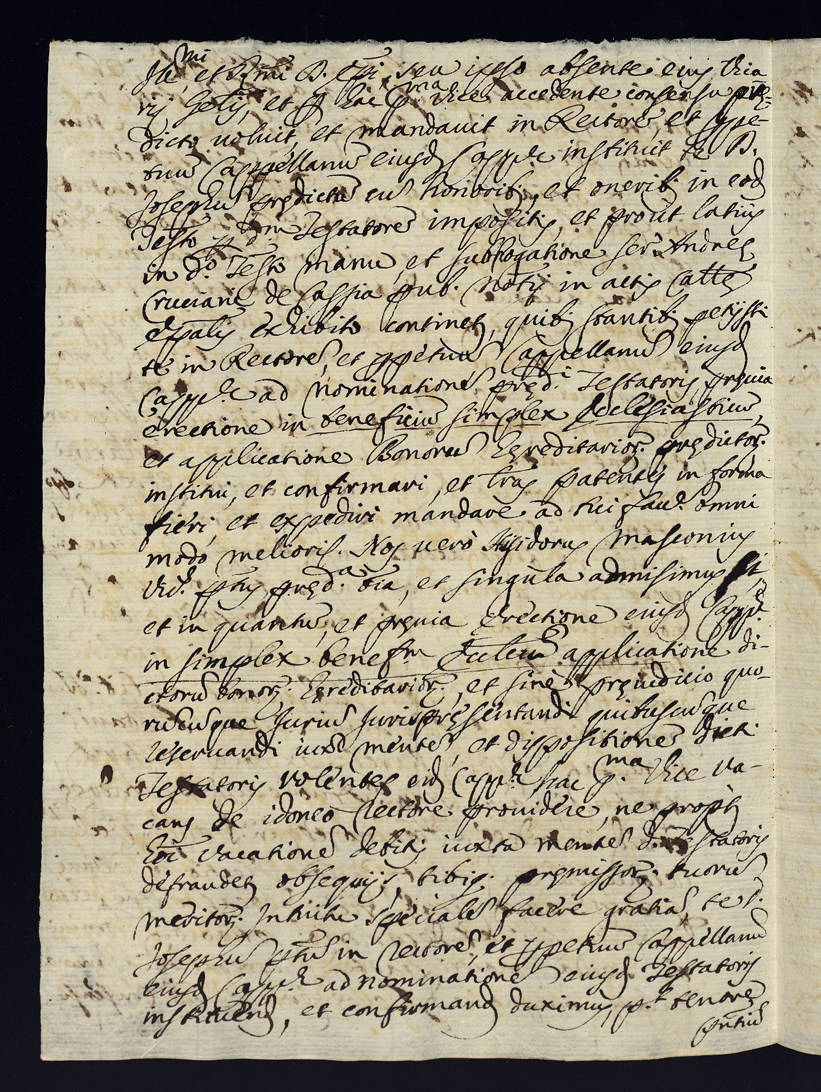 Ill.mi et R.mi D. Epi, seu ipso absente eius Vica
rij Gēlis, et p hac p.ma vice accedente consensu pre
dicto voluit, et mandavit in Rectorē et ppe-
tuū Cappellanū eiusd Capp.ę instituit te D.
Josephū prędictū cū honorib, et onerib in eod
Testo p d.m Testatorē impositis, et prout latius
in d.o Testo manu, et subrogatione ser Andreę
Cruciani de Cassia pub. Notij in actis Cattę
Epalis exhibito continet, quib stantib petijsti
te in Rectorē, et ppetuū Cappellanū eiusd
Capp.ę ad nominationē pręd.i Testatoris pręvia
erectione in beneficiū simplex Ecclesiasticū,
et applicatione Bonorū hęreditarior. prędictor.
institui, et confirmari, et lras patentes in forma
fieri, et expediri mandare ad tui fav.ē omni
modo meliori. Nos vero Isidorus Masconius
Vic.s pńs pręd.a oia, et singula admisimus si,
et in quantū, et pręvia erectione eiusd Capp.ę
in simplex benef.m applicatione di-
ctorū bonor. hęreditarior, et sine pręiudicio quo-
rūcūque Juriū Jurispręsentandi quibuscūque
reservandi iuxa mentē, et dispositionē dicti
Testatoris volentes eid Capp.ę hac p.ma Vice va-
canti de idoneo rectore providere, ne propt
hoc vacationē debitis iuxta mentē d. Testatoris
defraudet obsequijs, tibiq. pręmissor. tuorū
meritor. intuitu specialē facere gratiā, te D.
Josephū ptū in rectorē, et ppetuū Cappellanū
eiusd Capp.ę ad nominationē eiusd Testatoris
instituend, et confirmand duximus, p.t tenorē
pńtiū